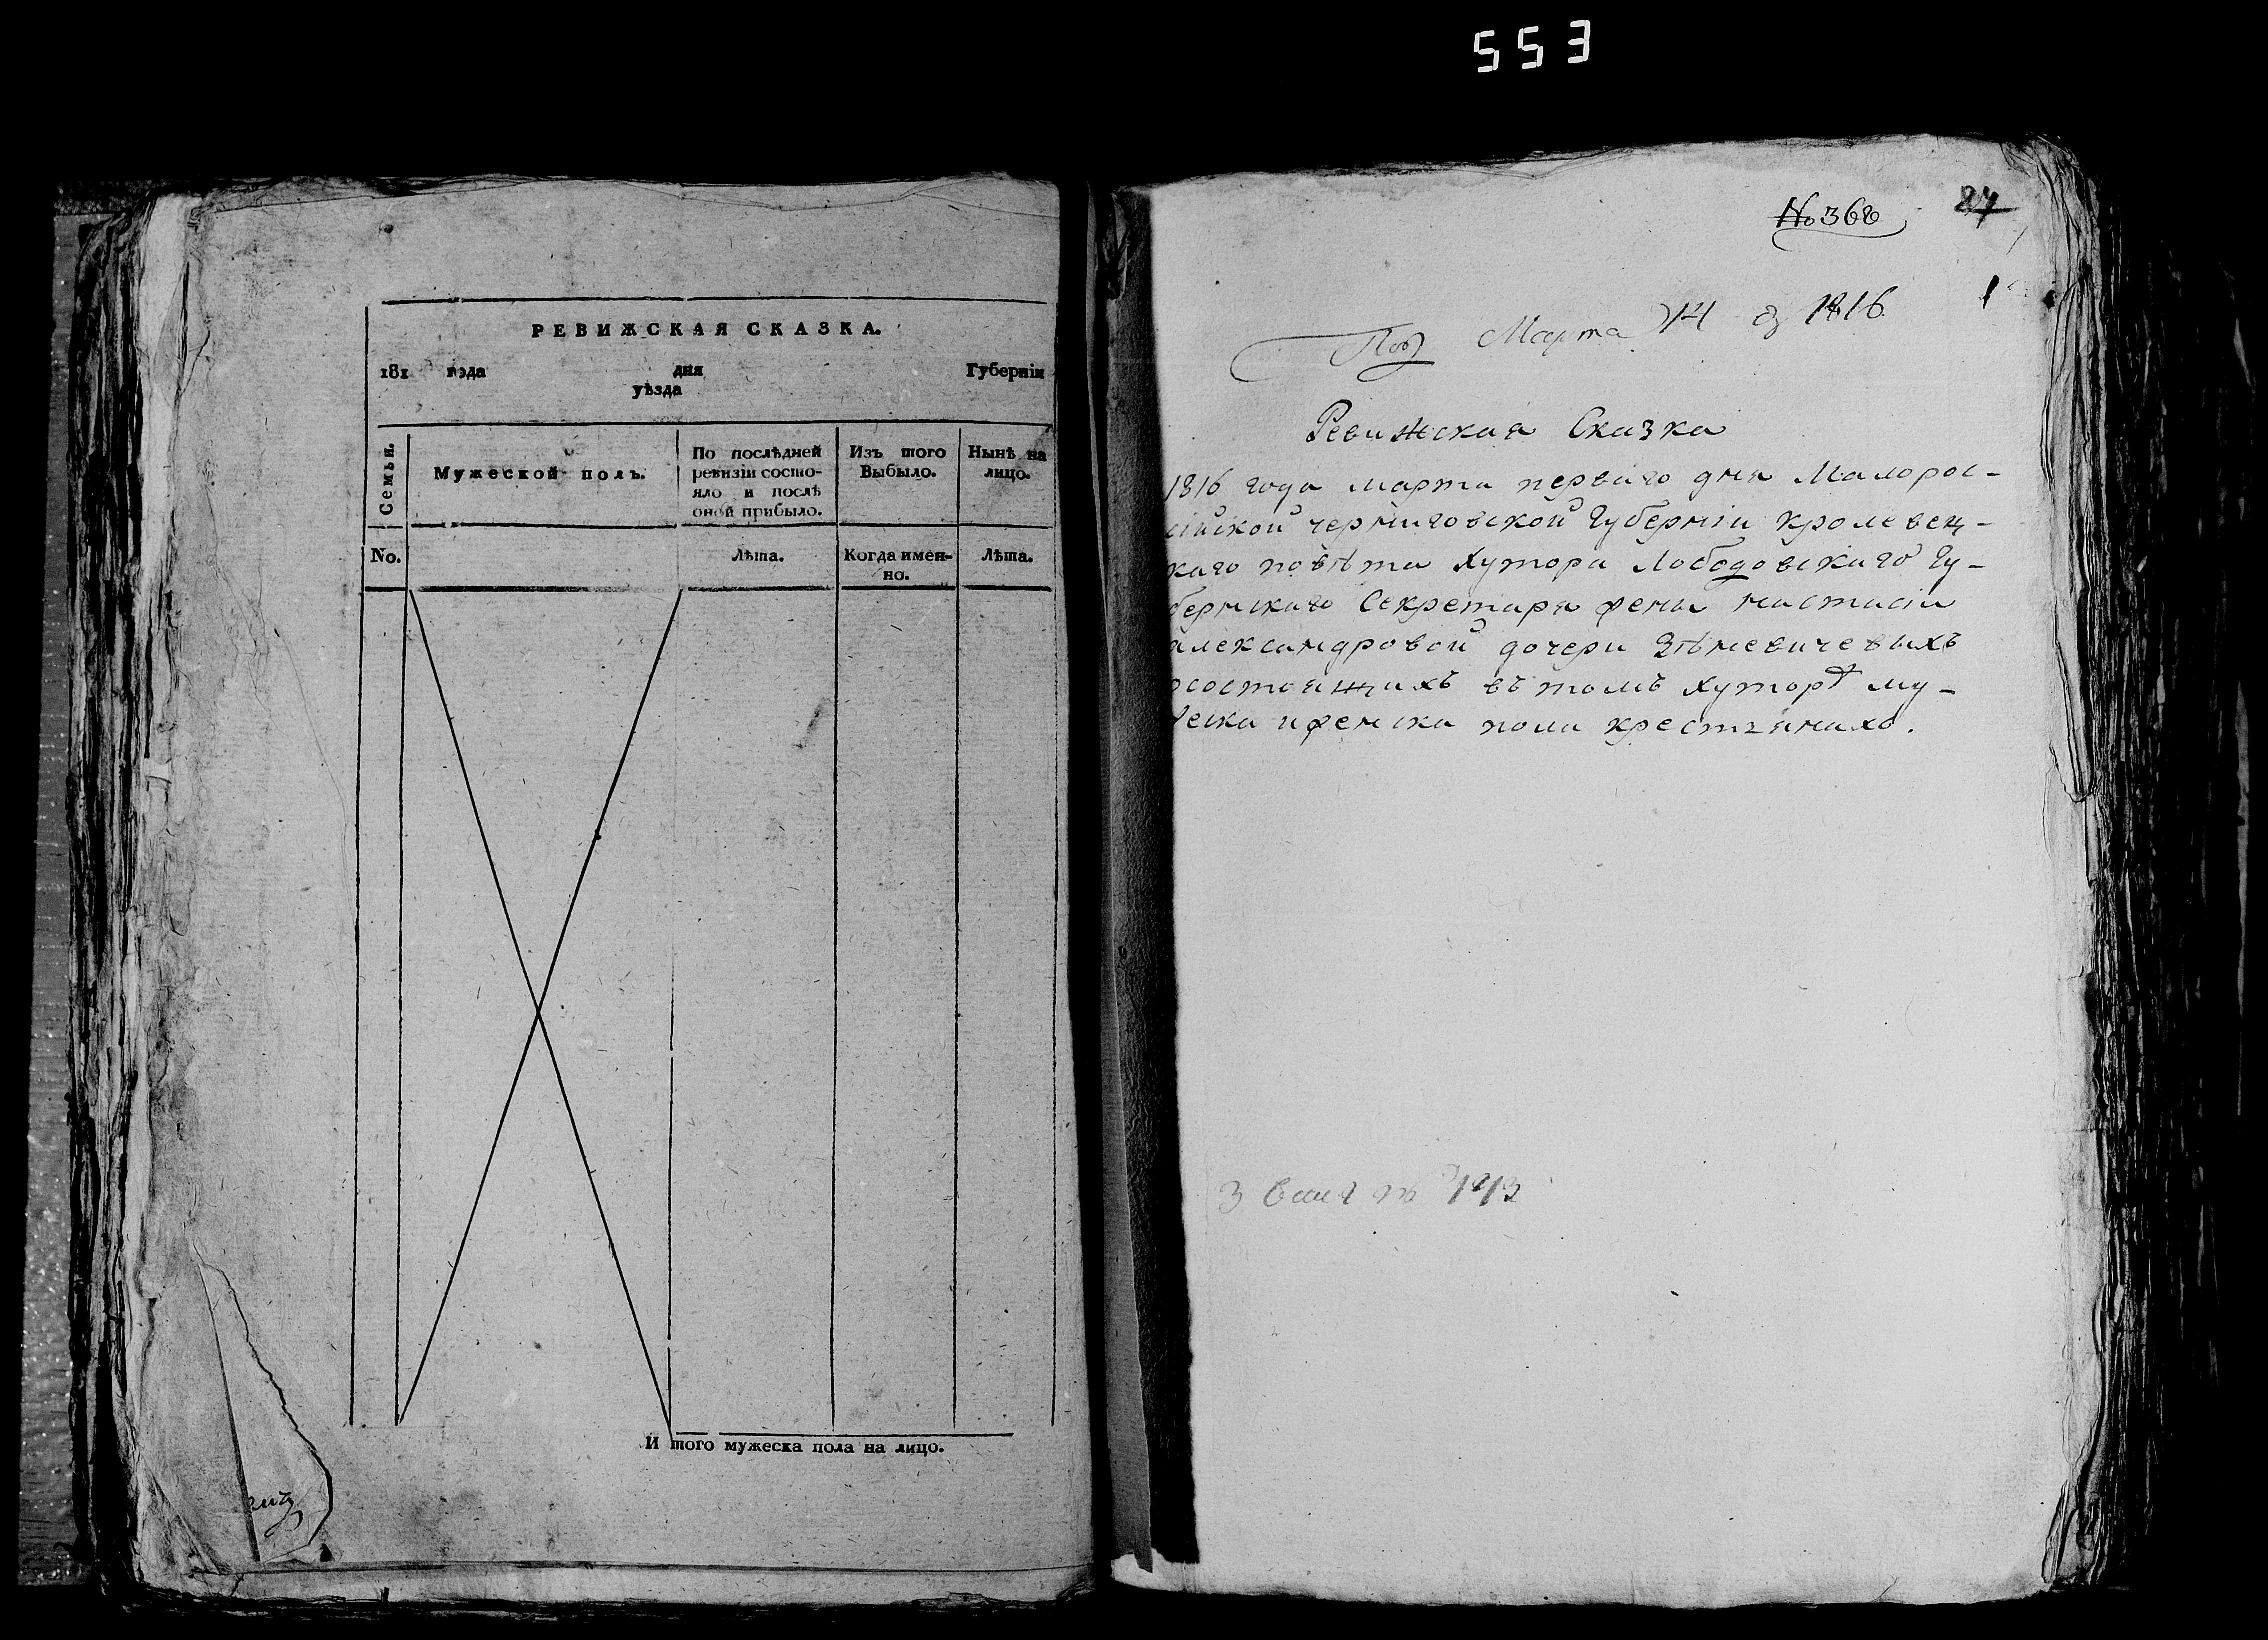 553
РЕВИЖСКАЯ СКАЗКА.
181 года дня Губерніи
уѣзда
Семьи.
Мужеской полъ.
По послѣдней
ревизіи состо-
яло и послѣ
оной прибыло.
Изъ того
Выбыло.
Нынѣ на
лицо.
No.
Лѣта.
Когда имен-
но.
Лѣта.
И того мужеска пола на лицо.
No 368
27
1
Марта 14 1816
Ревижская Сказка
1816 года марта перваго дня Малорос-
сійской черниговской Губерніи кролевец-
каго повѣта Хутора Лободовскаго Гу-
бернскаго Секретаря жены настасіи
александровой дочери Зѣневичевыхъ
состоящихъ въ томъ Хуторѣ му-
жеска иженска пола крестьянахъ.